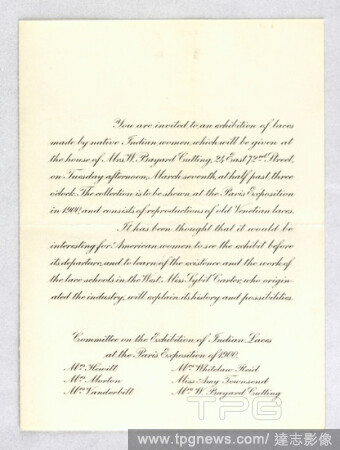 You are invited to an exhibition of laces
made by native Indian women which will be given at
the house of Mrs. W. Bayard Cutting, 24 East 72nd Street,
on Tuesday afternoon, March seventh, at half past three
o'clock. The collection is to be shown at the Paris Exposition
in 1900, and consists of reproductions of old Venetian laces.
It has been thought that it would be
interesting for American women to see the exhibit before
its departure, and to learn of the existence and the work of
the lace schools in the West. Miss Sybil Carter, who origin-
ated the industry, will explain its history and possibilities.
Committee on the Exhibition of Indian Laces
at the Paris Exposition of 1900.
Mrs. Hewitt Mrs. Whitelaw Reid
Mrs. Morton Miss Amy Townsend
Mrs. Vanderbilt Mrs. W. Bayard Cutting
TPG
www.tpgnews.com/達志影像